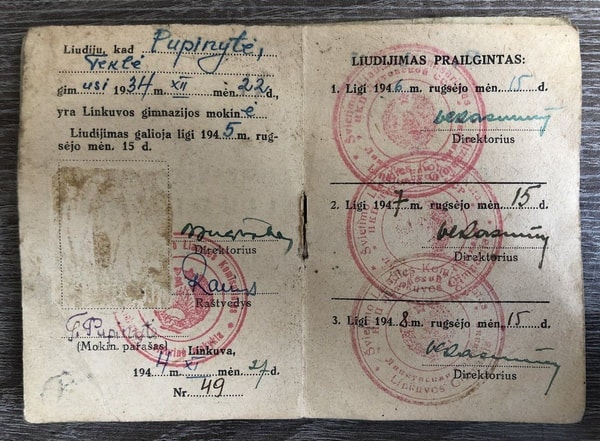 Liudiju, kad Pupinytė,
Teklė
gim.usi 1934 m. XII mėn. 22 d.,
yra Linkuvos gimnazijos mokinė
Liudijimas galioja ligi 1945 m. rug-
sėjo mėn. 15 d.
Direktorius
Raštvedys
T. Pupinytė
(Mokin. parašas)
Linkuva,
194 4 m. XI mėn. d.
Nr. 49
LIUDIJIMAS PRAILGINTAS:
1. Ligi 1946 m. rugsėjo mėn. 15 d.
Direktorius
2. Ligi 1947 m. rugsėjo mėn. 15 d.
Direktorius
3. Ligi 1948 m. rugsėjo mėn. 15 d.
Direktorius